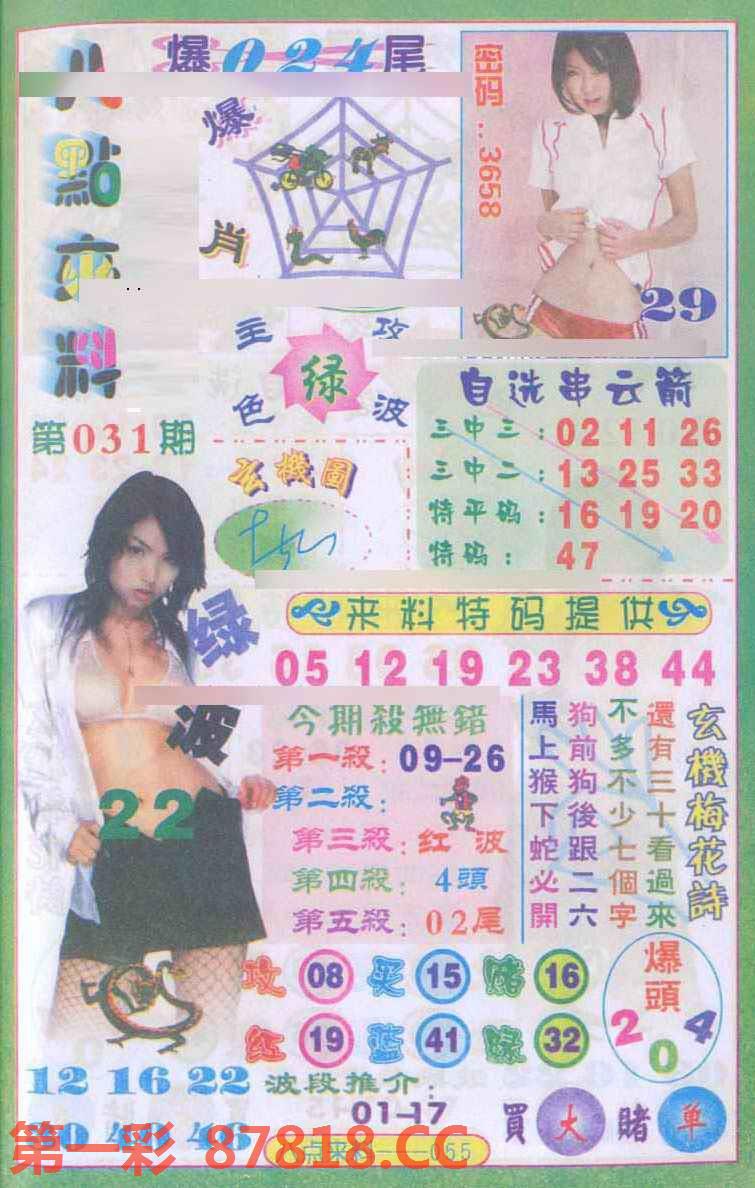 八點來料
爆024尾
爆肖
密码:3658
29
主攻
绿
色波
第031期
自选串云箭
三中三:02 11 26
三中二:13 25 33
特平码:16 19 20
特码:47
玄機圖
来料特码提供
05 12 19 23 38 44
绿波
22
今期殺無錯
第一殺:09-26
第二殺:
第三殺:红波
第四殺:4頭
第五殺:02尾
玄機梅花詩
還有三十看過來
不多不少七個字
狗前狗後跟二六
馬上猴下蛇必開
攻 08 买 15 赌 16
红 19 蓝 41 绿 32
爆頭
2 0 4
12 16 22
波段推介:
01-17
買大賭单
第一彩 87818.CC